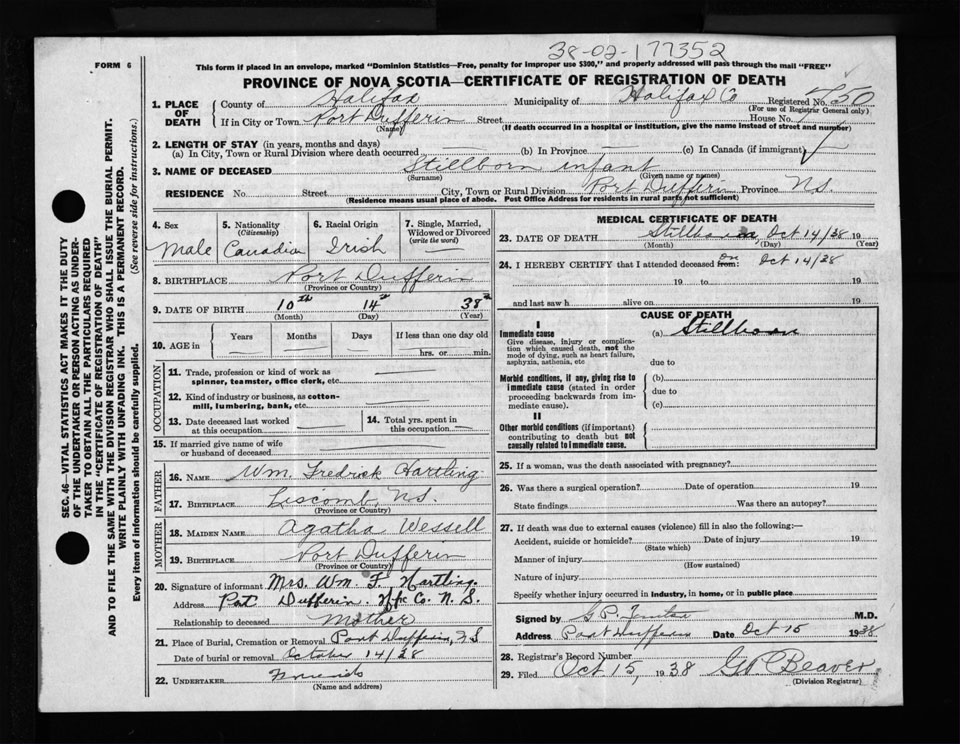 38-02-177352
FORM 6
This form if placed in an envelope, marked "Dominion Statistics—Free, penalty for improper use $300," and properly addressed will pass through the mail "FREE"
PROVINCE OF NOVA SCOTIA—CERTIFICATE OF REGISTRATION OF DEATH
1. PLACE OF DEATH
County of Halifax Municipality of Halifax Co Registered No.
(For use of Registrar General only)
If in City or Town Port Dufferin Street House No.
(Name) (If death occurred in a hospital or institution, give the name instead of street and number)
2. LENGTH OF STAY (in years, months and days)
(a) In City, Town or Rural Division where death occurred (b) In Province (c) In Canada (if immigrant)
3. NAME OF DECEASED Stillborn infant
(Surname) (Given name or names)
RESIDENCE No. Street City, Town or Rural Division Port Dufferin Province N.S.
(Residence means usual place of abode. Post Office Address for residents in rural parts not sufficient)
4. Sex Male
5. Nationality (Citizenship) Canadian
6. Racial Origin Irish
7. Single, Married, Widowed or Divorced (write the word) —
8. BIRTHPLACE Port Dufferin
(Province or Country)
9. DATE OF BIRTH 10th 14th 38
(Month) (Day) (Year)
10. AGE in Years Months Days If less than one day old
hrs. or min.
OCCUPATION
11. Trade, profession or kind of work as spinner, teamster, office clerk, etc.
12. Kind of industry or business, as cotton-mill, lumbering, bank, etc.
13. Date deceased last worked at this occupation
14. Total yrs. spent in this occupation
15. If married give name of wife or husband of deceased
FATHER
16. NAME Wm. Fredrick Hartling
17. BIRTHPLACE Liscomb, N.S.
(Province or Country)
MOTHER
18. MAIDEN NAME Agatha Wessell
19. BIRTHPLACE Port Dufferin
(Province or Country)
20. Signature of informant Mrs. Wm. F. Hartling.
Address Port Dufferin. Hfx Co. N.S.
Relationship to deceased Mother
21. Place of Burial, Cremation or Removal Port Dufferin, N S
Date of burial or removal October 14/38
22. UNDERTAKER Friends
(Name and address)
MEDICAL CERTIFICATE OF DEATH
23. DATE OF DEATH Stillborn, Oct 14/38 19
(Month) (Day) (Year)
24. I HEREBY CERTIFY that I attended deceased from: On Oct 14/38
19 to 19
and last saw h alive on 19
CAUSE OF DEATH
I
Immediate cause
Give disease, injury or complication which caused death, not the mode of dying, such as heart failure, asphyxia, asthenia, etc
(a) Stillborn
due to
Morbid conditions, if any, giving rise to immediate cause (stated in order proceeding backwards from immediate cause).
(b)
due to
(c)
II
Other morbid conditions (if important) contributing to death but not causally related to immediate cause.
25. If a woman, was the death associated with pregnancy?
26. Was there a surgical operation? Date of operation 19
State findings Was there an autopsy?
27. If death was due to external causes (violence) fill in also the following:—
Accident, suicide or homicide? Date of injury 19
(State which)
Manner of injury
(How sustained)
Nature of injury
Specify whether injury occurred in industry, in home, or in public place
Signed by M.D.
Address Port Dufferin Date Oct 15 1938
28. Registrar's Record Number
29. Filed Oct 15, 1938 G P Beaver
(Division Registrar)
SEC. 46—VITAL STATISTICS ACT MAKES IT THE DUTY
OF THE UNDERTAKER OR PERSON ACTING AS UNDER-
TAKER TO OBTAIN ALL THE PARTICULARS REQUIRED
IN THE "CERTIFICATE OF REGISTRATION OF DEATH"
AND TO FILE THE SAME WITH THE DIVISION REGISTRAR WHO SHALL ISSUE THE BURIAL PERMIT.
WRITE PLAINLY WITH UNFADING INK. THIS IS A PERMANENT RECORD.
Every item of information should be carefully supplied. (See reverse side for instructions.)